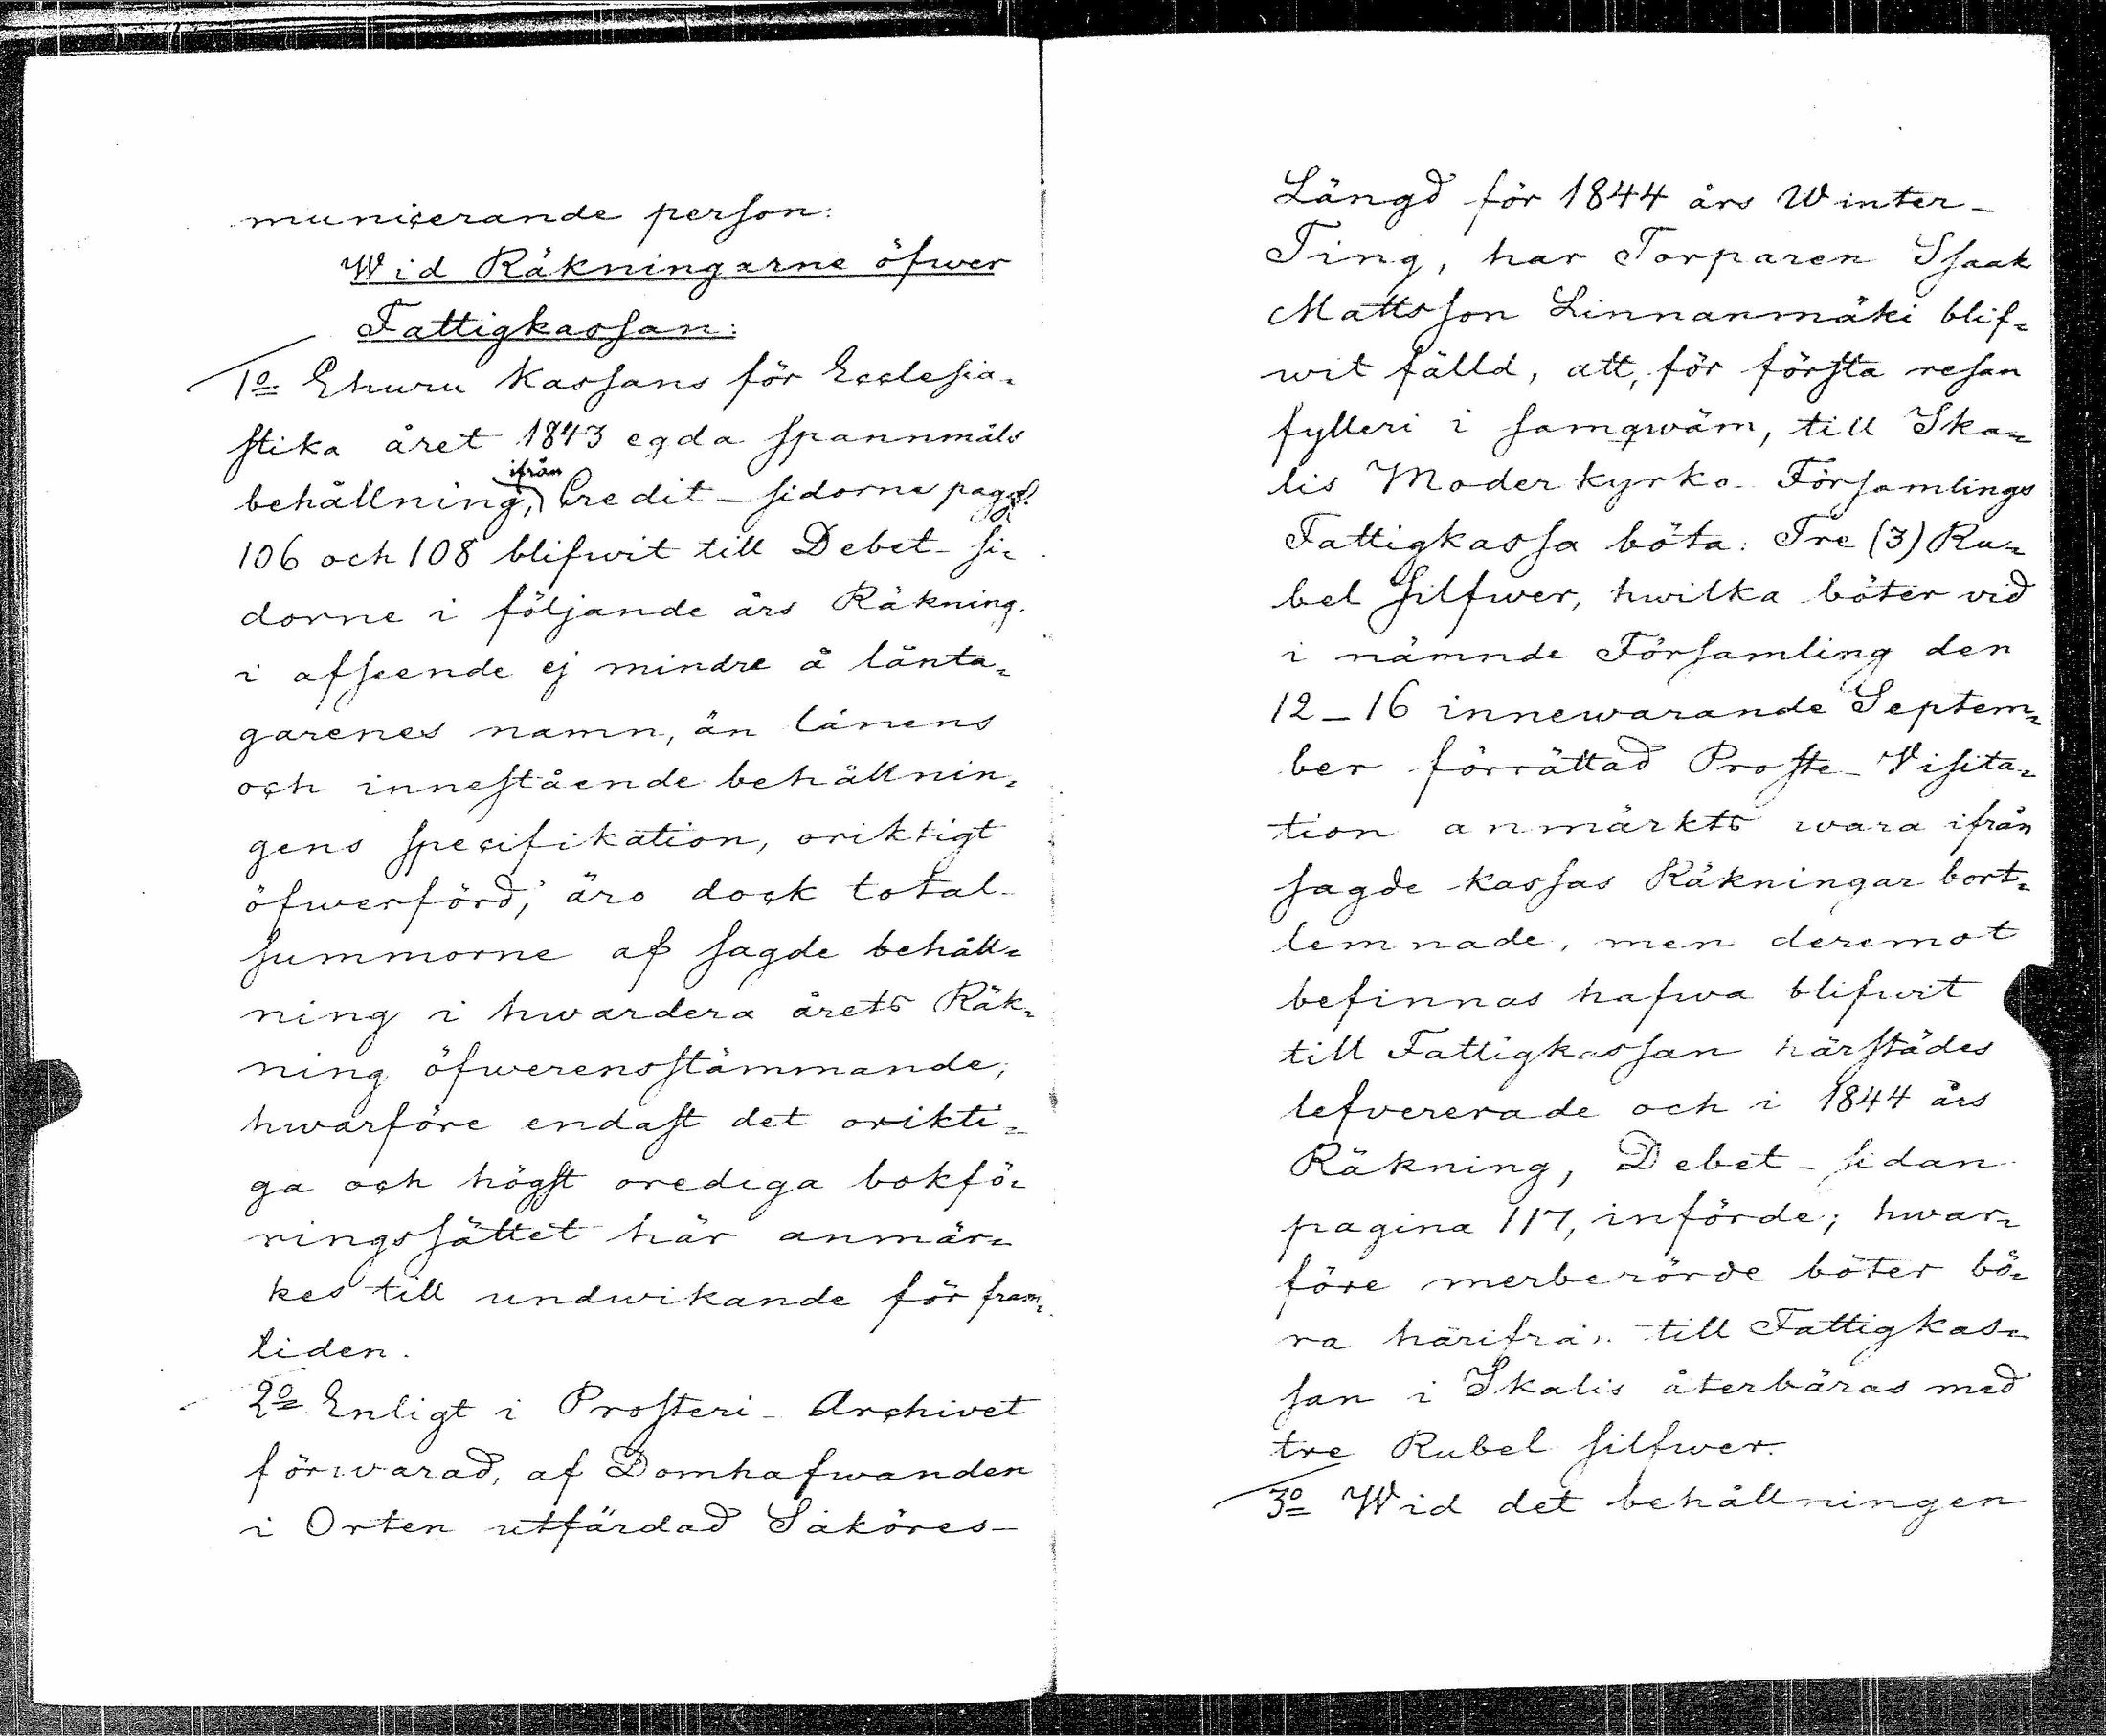 municerande person.
Wid Räkningarne öfwer
Fattigkassan:
1º Ehuru kassans för Ecclesia-
stika året 1843 egda spannmåls
behållning, ifrån Credit-sidorne pagg.
106 och 108 blifwit till Debet-si-
dorne i följande års Räkning.
i afseende ej mindre å lånta-
garenes namn, än lånens
och innestående behållnin-
gens specifikation, oriktigt
öfwerförd, äro dock total-
summorne af sagde behåll-
ning i hwardera årets Räk-
ning öfwerensstämmande,
hwarföre endast det orikti-
ga och högst orediga bokfö-
ringssättet här anmär-
kes till undwikande för fram-
tiden.
2º Enligt i Prosteri-Archivet
förwarad, af Domhafwanden
i Orten utfärdad Saköres-
Längd för 1844 års Winter-
Ting, har Torparen Isaak
Mattsson Linnanmäki blif-
wit fälld, att, för första resan
fylleri i samqwäm, till Ika-
lis Moderkyrko-Församlings
Fattigkassa böta: Tre (3) Ru-
bel silfwer, hwilka böter vid
i nämnde Församling den
12-16 innewarande Septem-
ber förrättad Proste-Visita-
tion anmärkts wara ifrån
sagde kassas Räkningar bort-
lemnade, men deremot
befinnas hafwa blifwit
till Fattigkassan härstädes
lefvererade och i 1844 års
Räkning, Debet-sidan
pagina 117, införde; hwar-
före merberörde böter bö-
ra härifrån till Fattigkas-
san i Ikalis återbäras med
tre Rubel silfwer.
3º Wid det behållningen